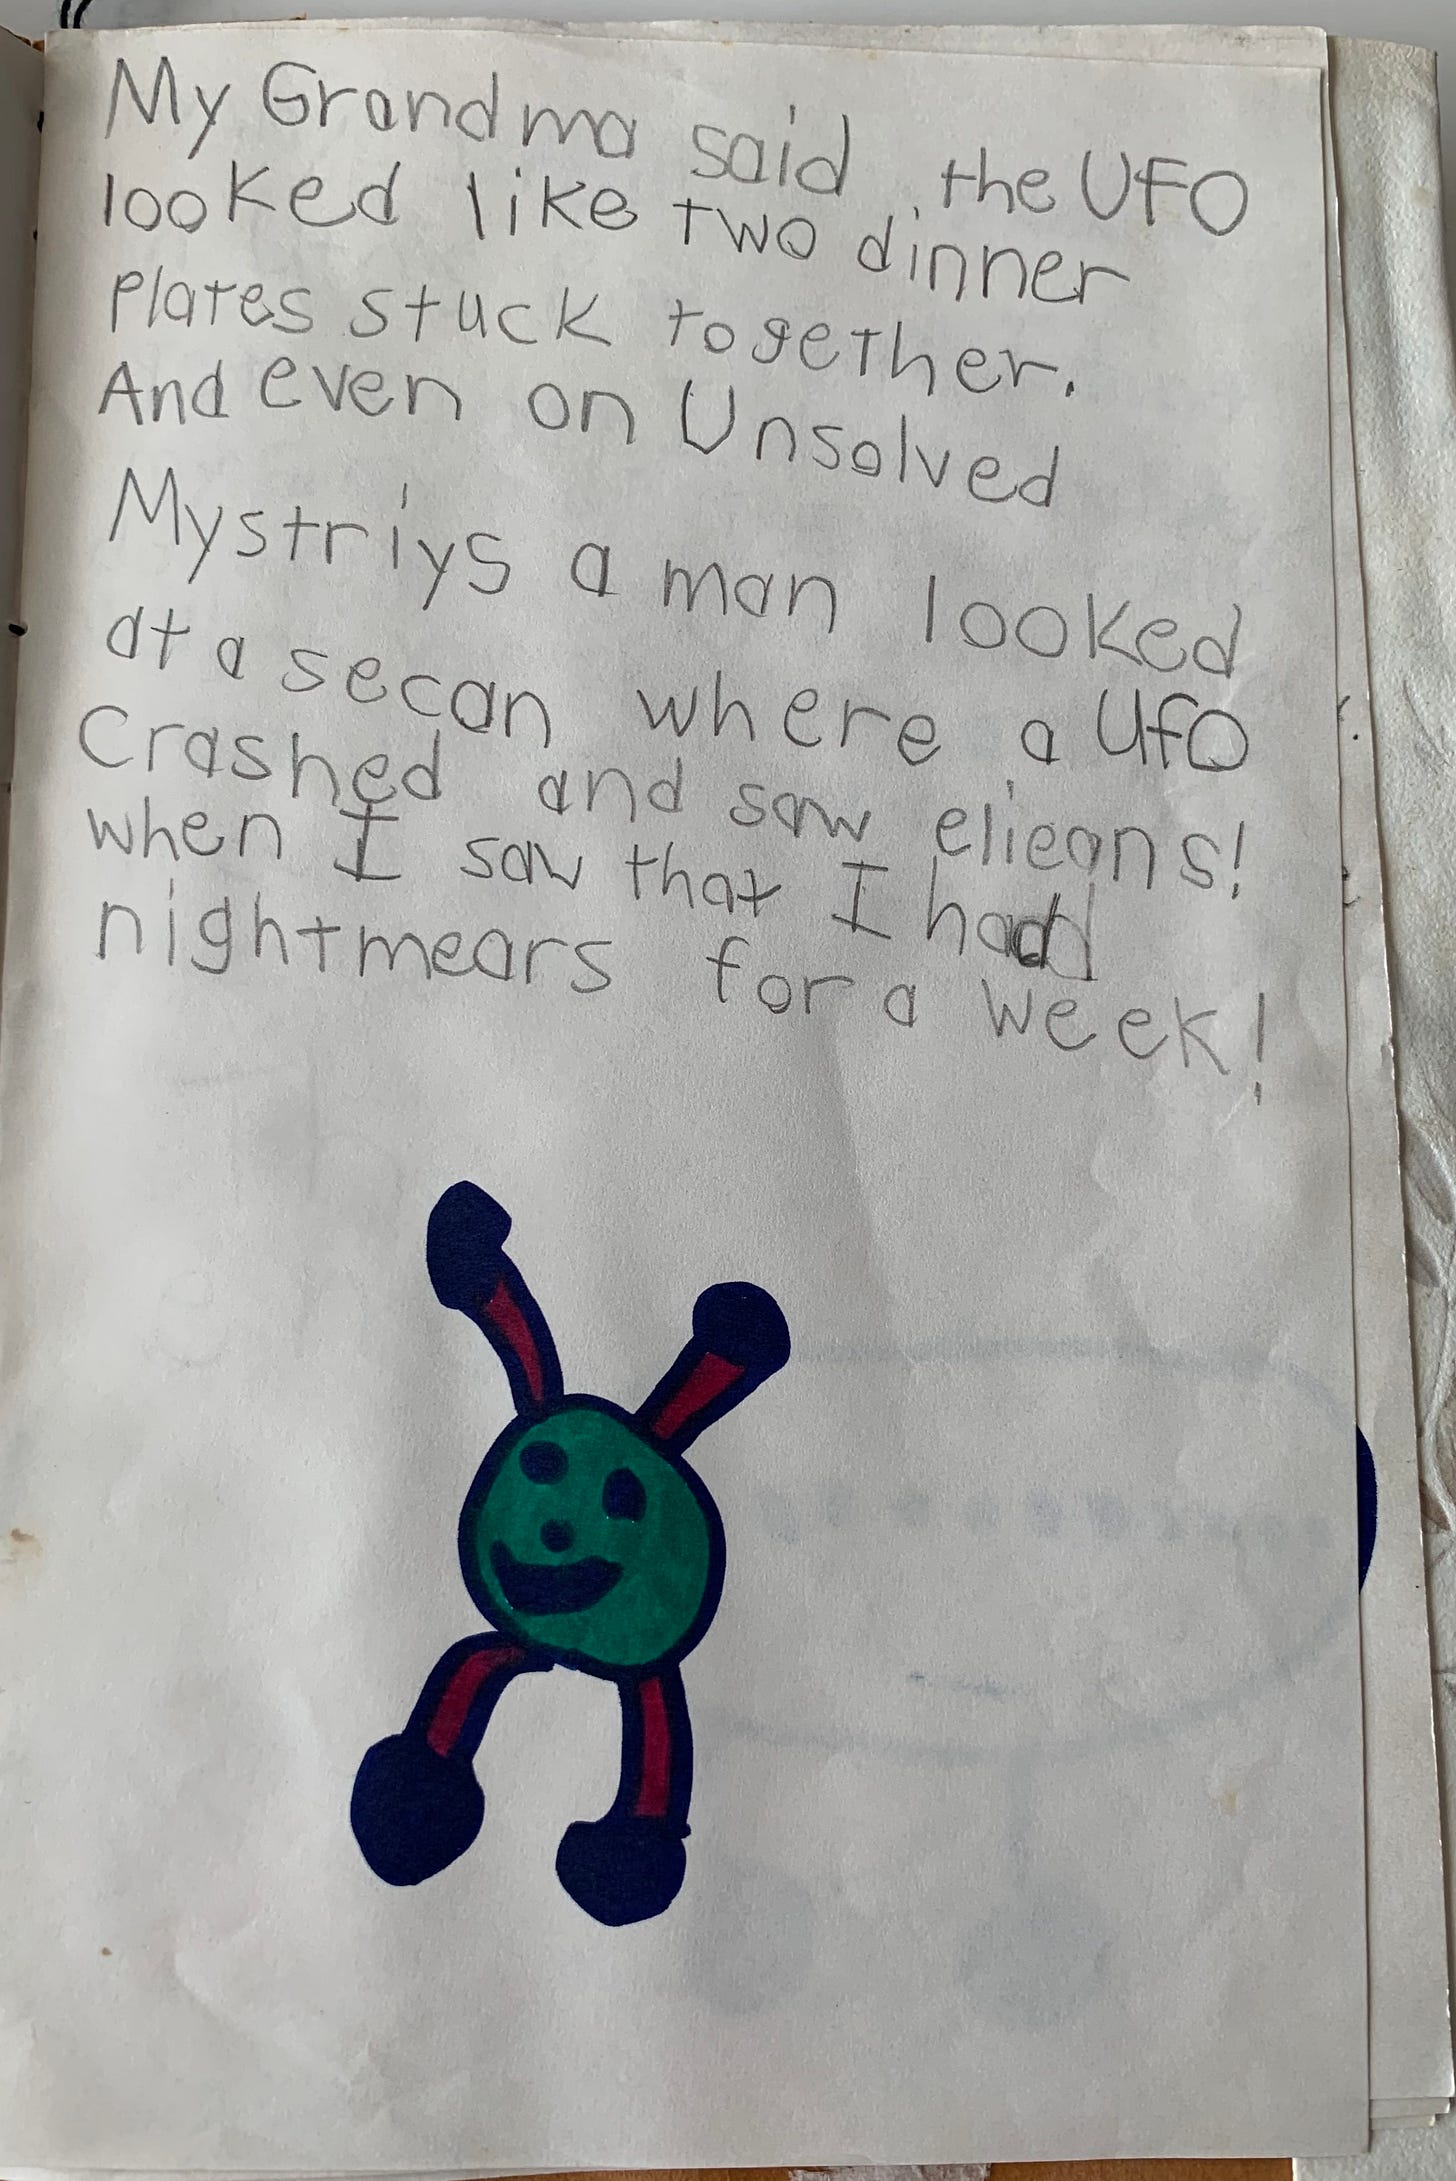 My Grandma said the UFO
looked like two dinner
Plates stuck together.
And even on Unsolved
Mystriys a man looked
at a secan where a UFO
Crashed and saw elieans!
when I saw that I had
nightmears for a week!